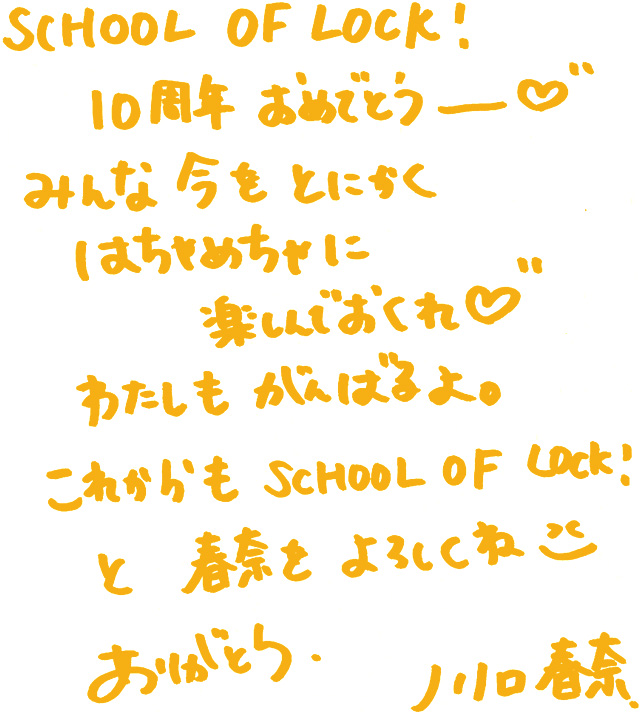 SCHOOL OF LOCK!
10周年 おめでとうー♡"
みんな 今を とにかく
はちゃめちゃに
楽しんでおくれ♡"
わたしも がんばるよ。
これからも SCHOOL OF LOCK!
と 春奈を よろしくね
ありがとう.
川口春奈.